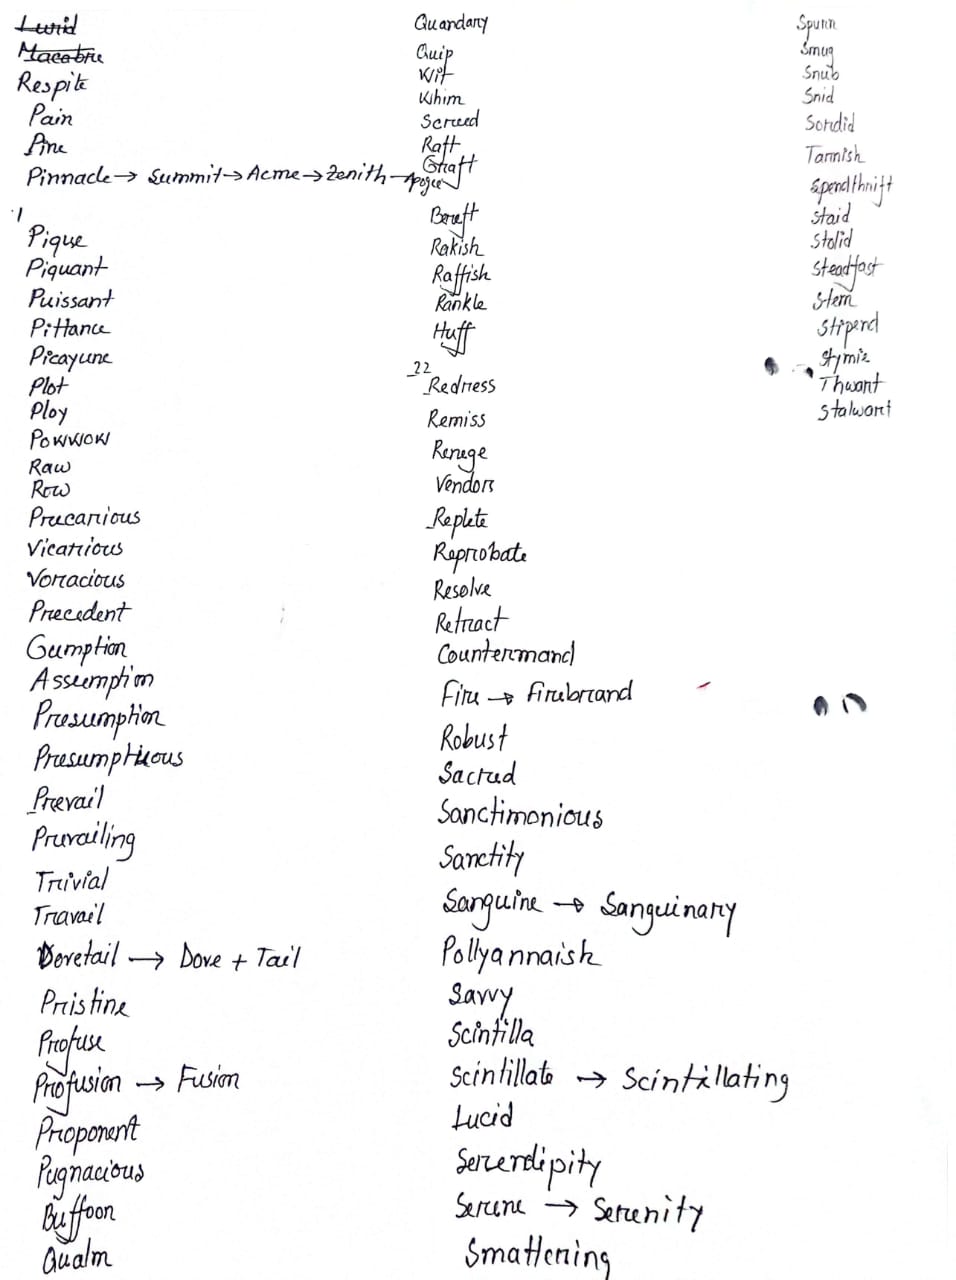 Lurid
Macabre
Respite
Pain
Pine
Pinnacle → Summit → Acme → Zenith → Apogee
Pique
Piquant
Puissant
Pittance
Picayune
Plot
Ploy
Powwow
Raw
Row
Precarious
Vicarious
Voracious
Precedent
Gumption
Assumption
Presumption
Presumptuous
Prevail
Prevailing
Trivial
Travail
Dovetail → Dove + Tail
Pristine
Profuse
Profusion → Fusion
Proponent
Pugnacious
Buffoon
Qualm
Quandary
Quip
Wit
Whim
Screed
Raft
Graft
Bereft
Rakish
Raffish
Rankle
Huff
22
Redress
Remiss
Renege
Vendors
Replete
Reprobate
Resolve
Retract
Countermand
Fire → Firebrand
Robust
Sacred
Sanctimonious
Sanctity
Sanguine → Sanguinary
Pollyannaish
Savvy
Scintilla
Scintillate → Scintillating
Lucid
Serendipity
Serene → Serenity
Smattering
Spurn
Smug
Snub
Snid
Sordid
Tarnish
Spendthrift
Staid
Stolid
Steadfast
Stem
Stipend
Stymie
Thwart
Stalwart